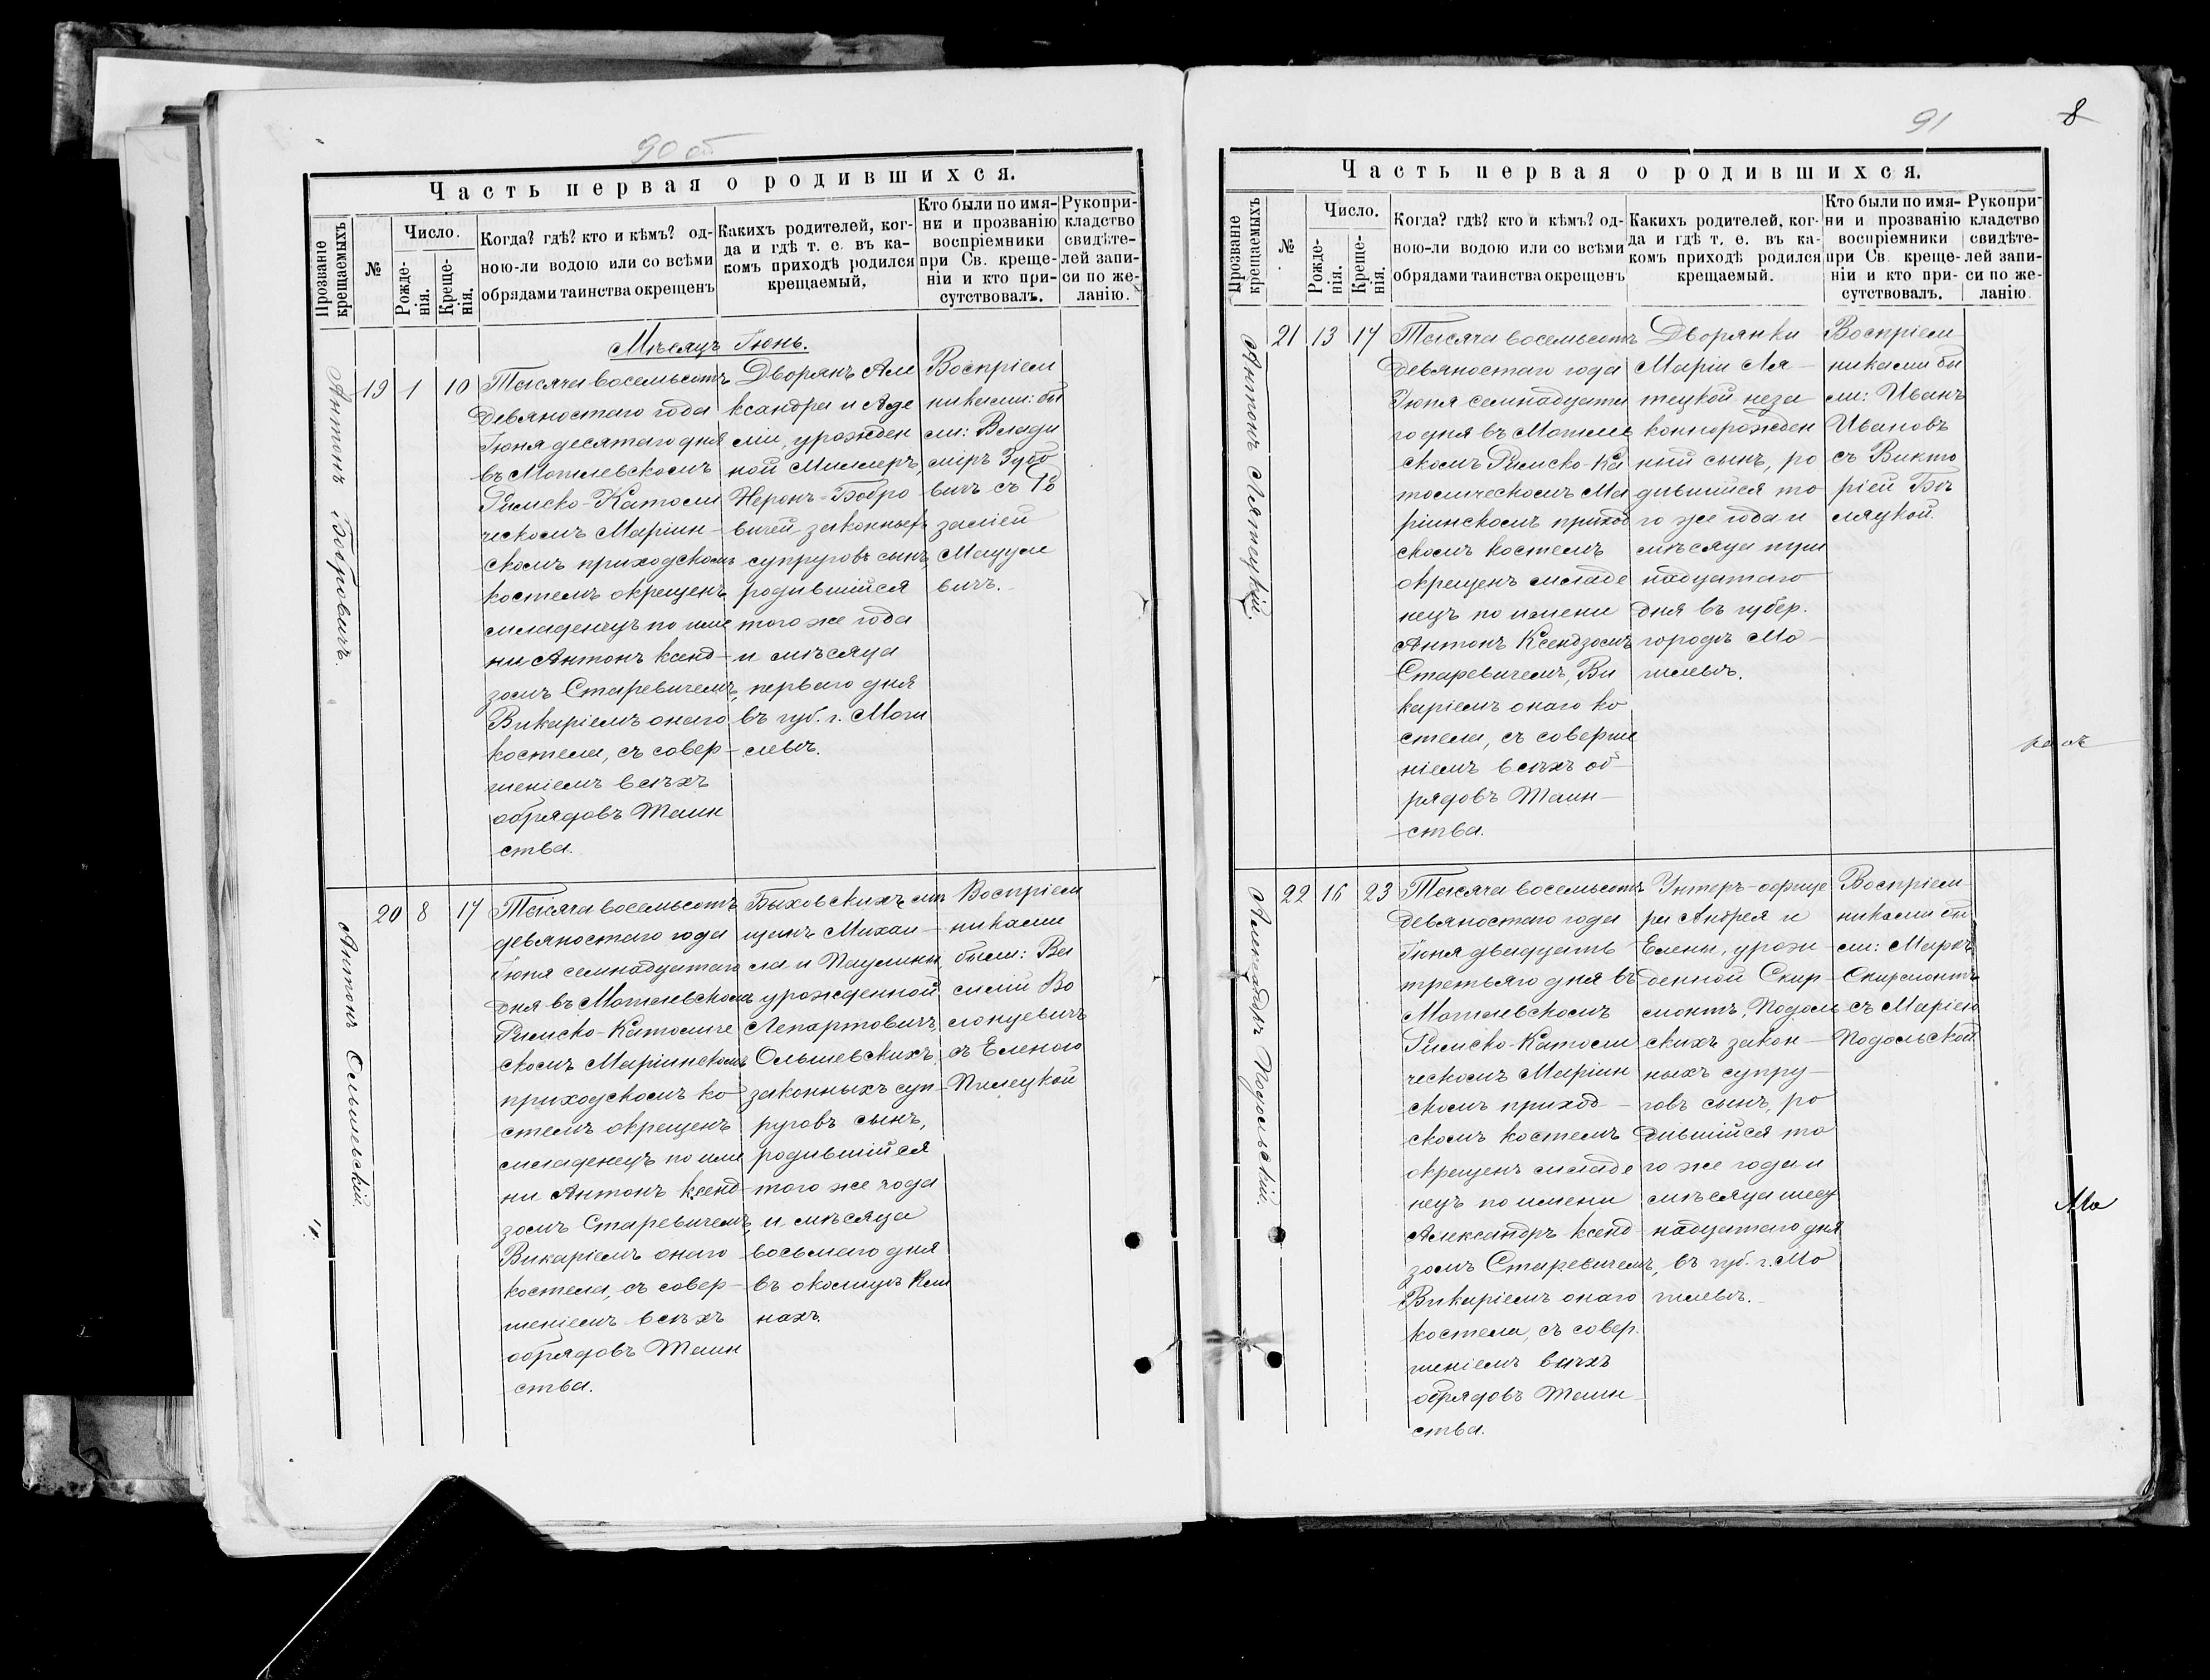 90 об
Часть первая о родившихся.
Прозване крещаемыхъ
№
Число.
Рожде-нія.
Креще-нія.
Когда? гдѣ? кто и кѣмъ? од-
ною-ли водою или со всѣми
обрядами таинства окрещенъ
Какихъ родителей, ког-
да и гдѣ т. е. въ ка-
комъ приходѣ родился
крещаемый,
Кто были по имя-
ни и прозванію
воспріемники
при Св. креще-
ніи и кто при-
сутствовалъ.
Рукопри-
кладство
свидѣте-
лей запи-
си по же-
ланію.
Мѣсяцъ Іюнь.
Антонъ Бобровичъ.
19 1 10
Тысяча восемьсотъ
девяностаго года
Іюня десятаго дня
въ Могилевскомъ
Римско-Католи
ческомъ Маріин-
скомъ приходскомъ
костелѣ окрещенъ
младенецъ по име
ни Антонъ ксенд-
зомъ Старевичемъ,
Викаріемъ онаго
костела, съ совер-
шеніемъ всѣхъ
обрядовъ Таин
ства.
Дворянъ Але
ксандра и Аде
ліи, урожден
ной Миллеръ,
Неронъ-Бобро
вичей, законныхъ
супруговъ сынъ,
родившійся
того же года
и мѣсяца
перваго дня
въ губ. г. Моги
левѣ.
Воспріем
никами: бы
ли: Влади
міръ Зубо
вичъ съ Ро
заліей
Мацуле
вичъ.
Антонъ Ольшевскій.
20 8 17
Тысяча восемьсотъ
девяностаго года
Іюня семнадцатаго
дня въ Могилевскомъ
Римско-Католиче
скомъ Маріинскомъ
приходскомъ ко
стелѣ окрещенъ
младенецъ по име
ни Антонъ ксенд-
зомъ Старевичемъ,
Викаріемъ онаго
костела, съ совер-
шеніемъ всѣхъ
обрядовъ Таин
ства.
Быховскихъ мѣ
щанъ Михаи-
ла и Паулины,
урожденной
Лепартовичъ,
Ольшевскихъ,
законныхъ суп-
руговъ сынъ,
родившійся
того же года
и мѣсяца
восьмаго дня
въ околицѣ Кли
нахъ.
Воспріем
никами
были: Ва
силій Во
лонцевичъ
съ Еленою
Пилецкой
91
8
Часть первая о родившихся.
Прозваніе крещаемыхъ
№
Число.
Рожде-нія.
Креще-нія.
Когда? гдѣ? кто и кѣмъ? од-
ною-ли водою или со всѣми
обрядами таинства окрещенъ
Какихъ родителей, ког-
да и гдѣ т. е. въ ка-
комъ приходѣ родился
крещаемый.
Кто были по имя-
ни и прозванію
воспріемники
при Св. креще-
ніи и кто при-
сутствовалъ.
Рукопри-
кладство
свидѣте-
лей запи-
си по же-
ланію.
Антонъ Лятецкій.
21 13 17
Тысяча восемьсотъ
девяностаго года
Іюня семнадцата
го дня въ Могилев
скомъ Римско-Ка
толическомъ Ма
ріинскомъ приход
скомъ костелѣ
окрещенъ младе
нецъ по имени
Антонъ Ксендзомъ
Старевичемъ, Ви
каріемъ онаго ко
стела, съ соверше
ніемъ всѣхъ об
рядовъ Таин-
ства.
Дворянки
Маріи Ля-
тецкой неза
коннорожден
ный сынъ, ро
дившійся то
го же года и
мѣсяца три
надцатаго
дня въ губер.
городѣ Мо-
гилевѣ.
Воспріем-
никами бы
ли: Иванъ
Ивановъ
съ Викто
ріей Бѣ
ляцкой.
Александръ Подольскій.
22 16 23
Тысяча восемьсотъ
девяностаго года
Іюня двадцать
третьяго дня въ
Могилевскомъ
Римско-Католи
ческомъ Маріин
скомъ приход-
скомъ костелѣ
окрещенъ младе
нецъ по имени
Александръ ксенд-
зомъ Старевичемъ,
Викаріемъ онаго
костела, съ совер.
шеніемъ всѣхъ
обрядовъ Таин-
ства.
Унтеръ-офице
ра Андрея и
Елены, урож-
денной Скир-
монтъ, Подоль
скихъ закон-
ныхъ супру-
говъ сынъ, ро
дившійся то
го же года и
мѣсяца шест
надцатаго дня
въ губ. г. Мо
гилевѣ.
Воспріем-
никами бы
ли: Маркъ
Скирмонтъ
съ Маріею
Подольской
Мо